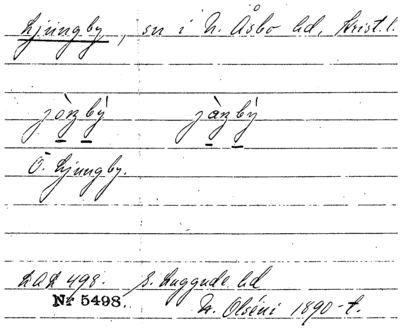 Ljungby, sn i N. Åsbo hd, Krist. l.
jò̠nzbý̠ jà̠nzbý̠
Ö. Ljungby.
DAL 498. S. Luggude hd
Nr 5498.
N. Olséni 1890-t.